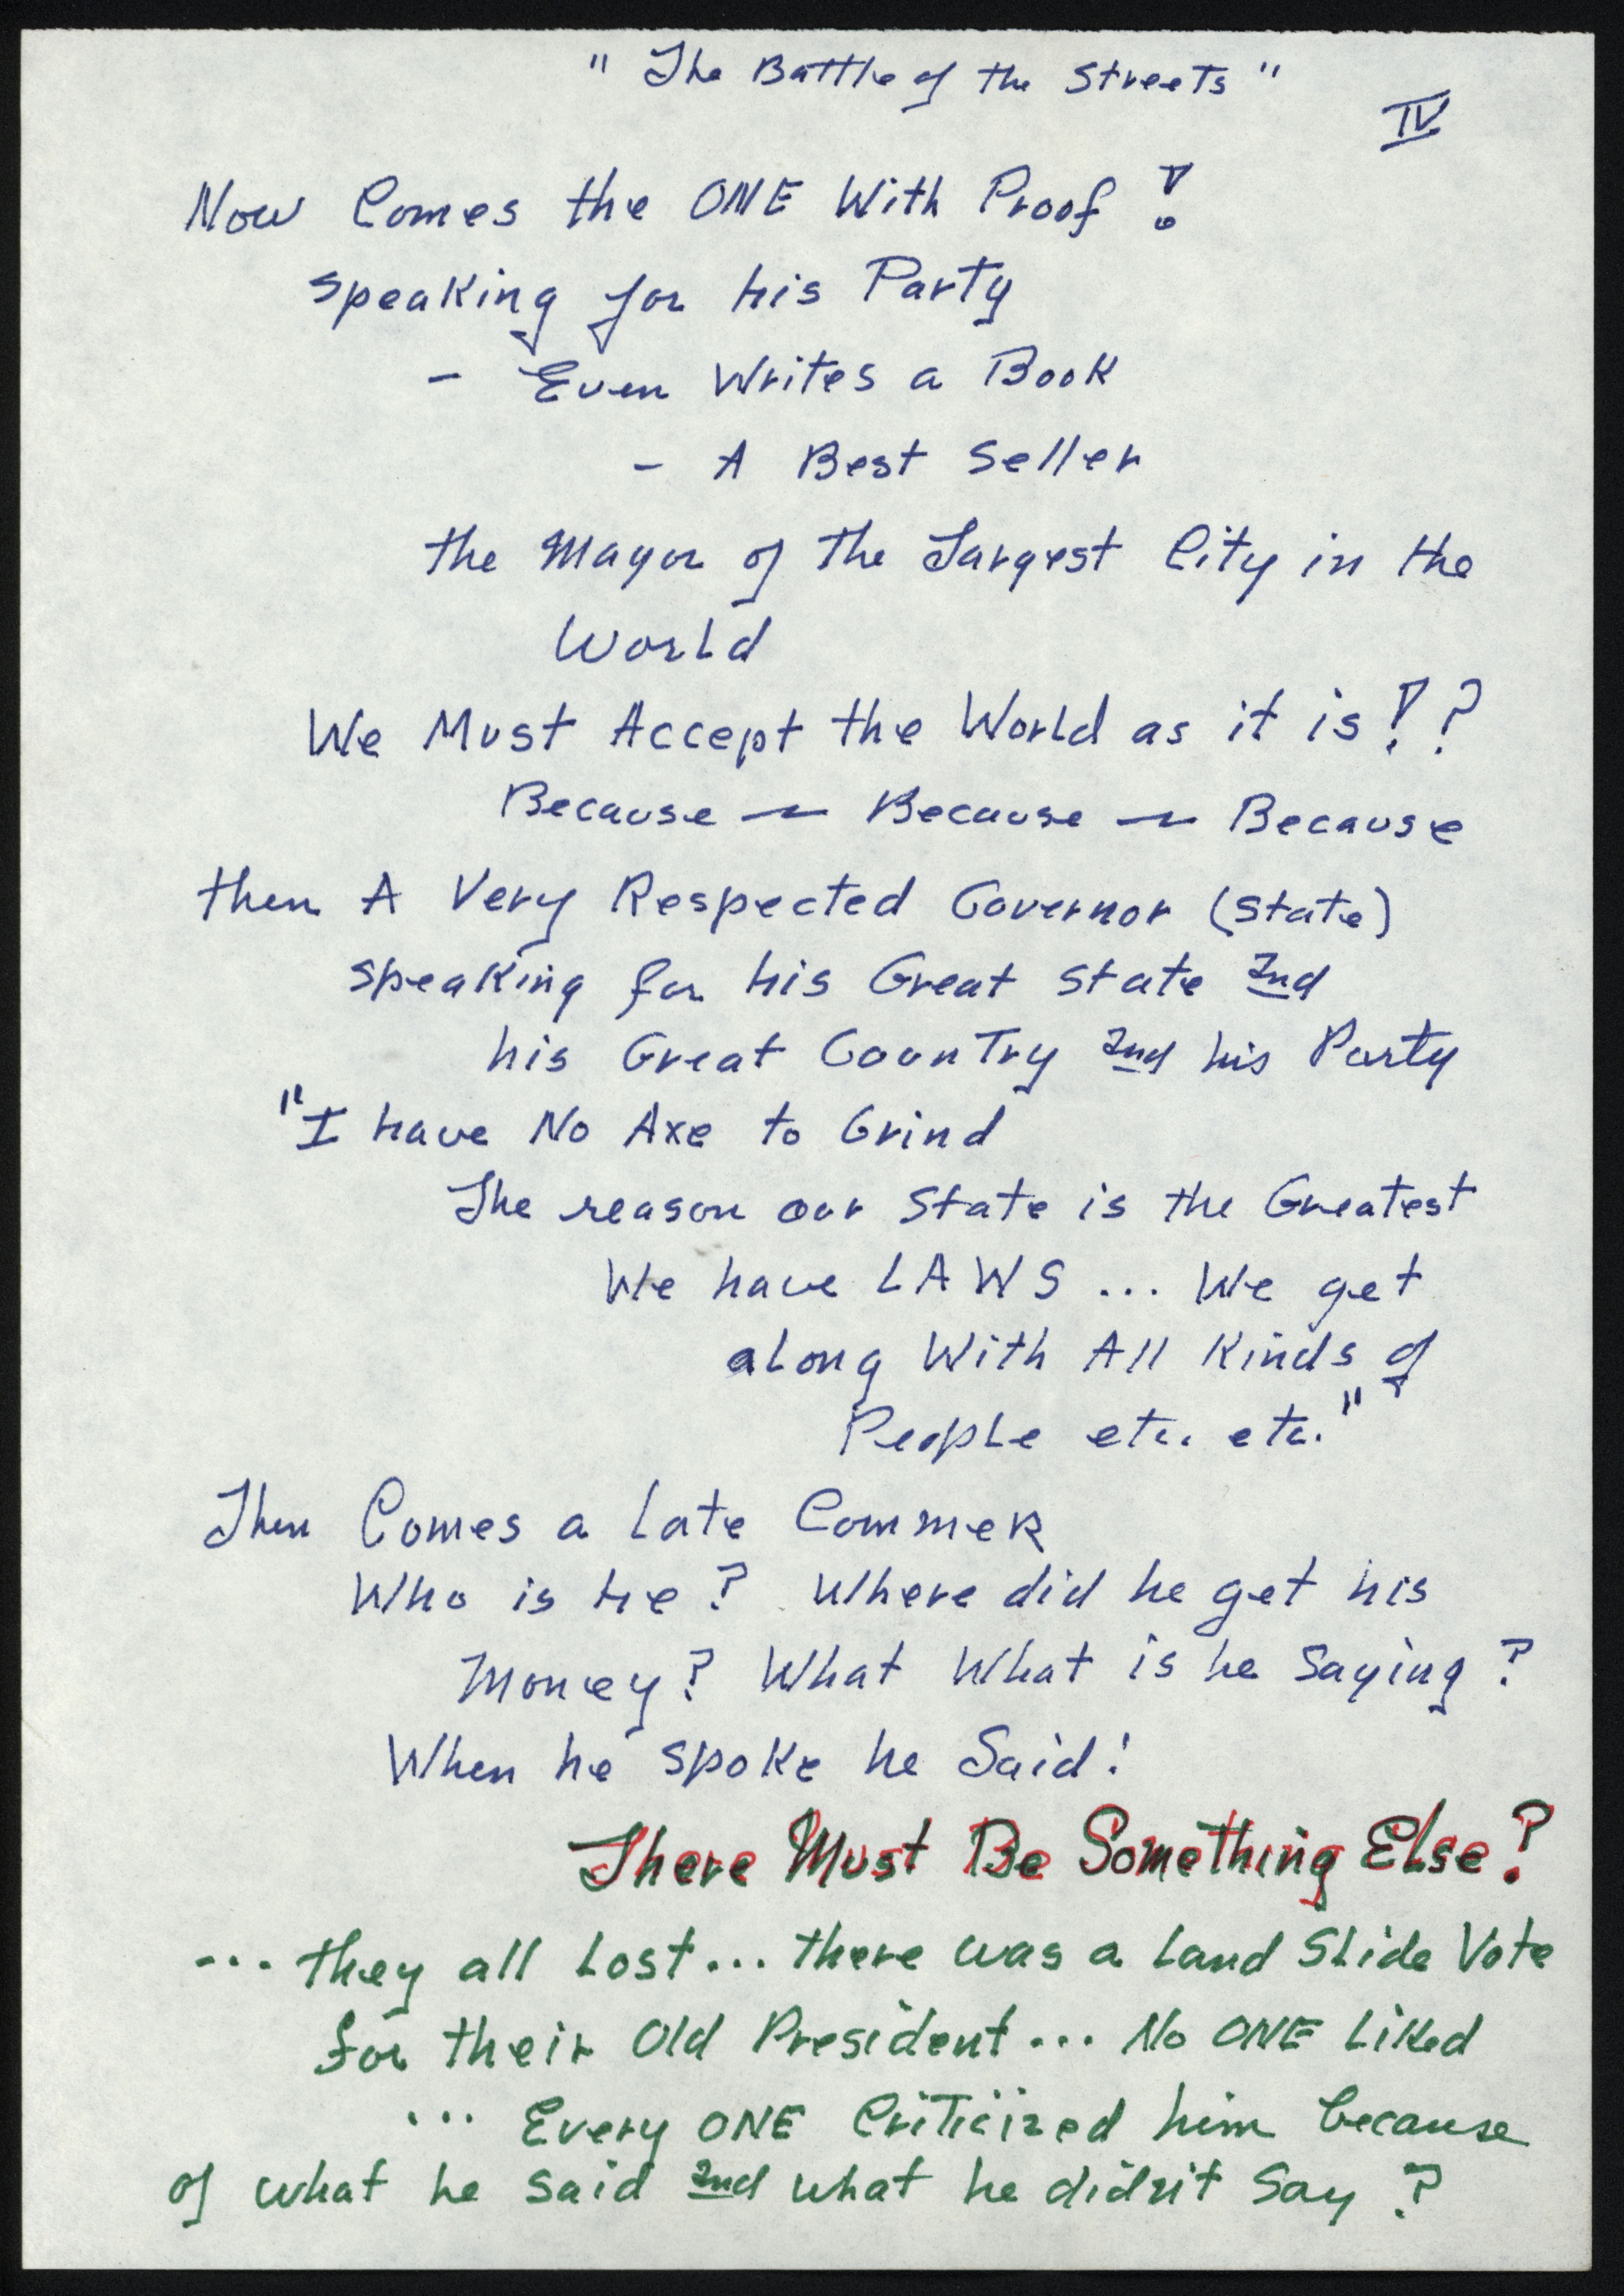 " The Battle of the Streets "
IV
Now Comes the ONE With Proof !
speaking for his Party
- Even Writes a Book
- A Best Seller
the Mayor of The Largest City in the
World
We Must Accept the World as it is ! ?
Because — Because — Because
then A Very Respected Governor (State)
speaking for his Great State and
his Great Country and his Party
"I have No Axe to Grind
The reason our State is the Greatest
We have LAWS ... We get
along With All Kinds of
People etc. etc."
Then Comes a Late Commer
Who is he? Where did he get his
Money? What What is he Saying ?
When he spoke he Said!
There Must Be Something Else?
... they all Lost... there was a Land Slide Vote
for their Old President ... No ONE Liked
... Every ONE Criticized him because
of what he said and what he didn't Say ?